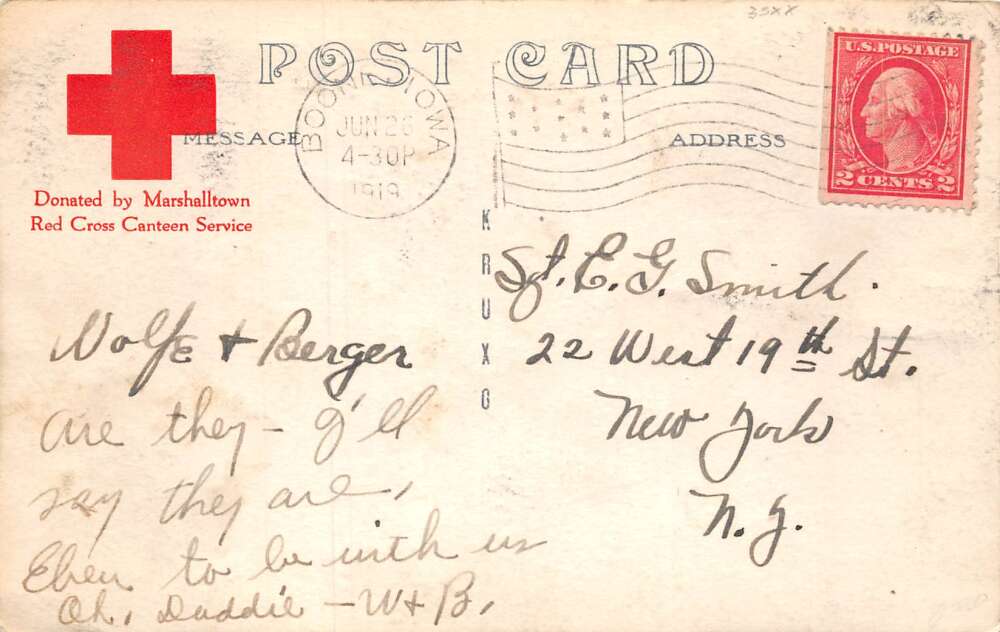 35XX
POST CARD
U.S. POSTAGE
2 CENTS 2
BOONE, IOWA
JUN 26
4-30P
1919
MESSAGE
ADDRESS
Donated by Marshalltown
Red Cross Canteen Service
KRUXO
Sgt. E. G. Smith.
22 West 19th St.
New York
N. Y.
Wolfe + Berger
are they - I'll
say they are,
Eben to be with us
Oh, Daddie - W + B,